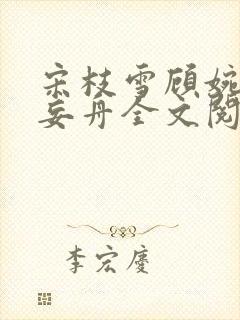 宋枝雪顾婉
妄丹全文阅
李宏庆